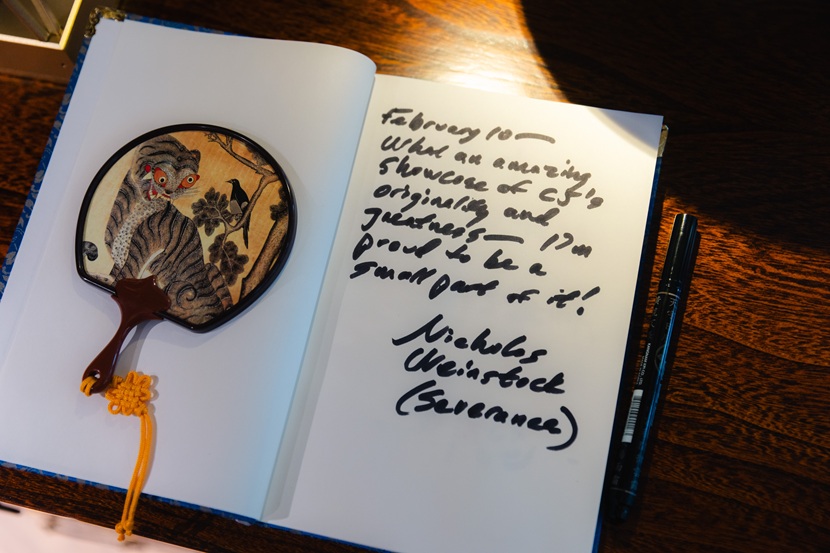 February 10 —
What an amazing
showcase of CJ's
originality and
greatness — I'm
proud to be a
small part of it!
Nicholas
Weinstock
(Severance)